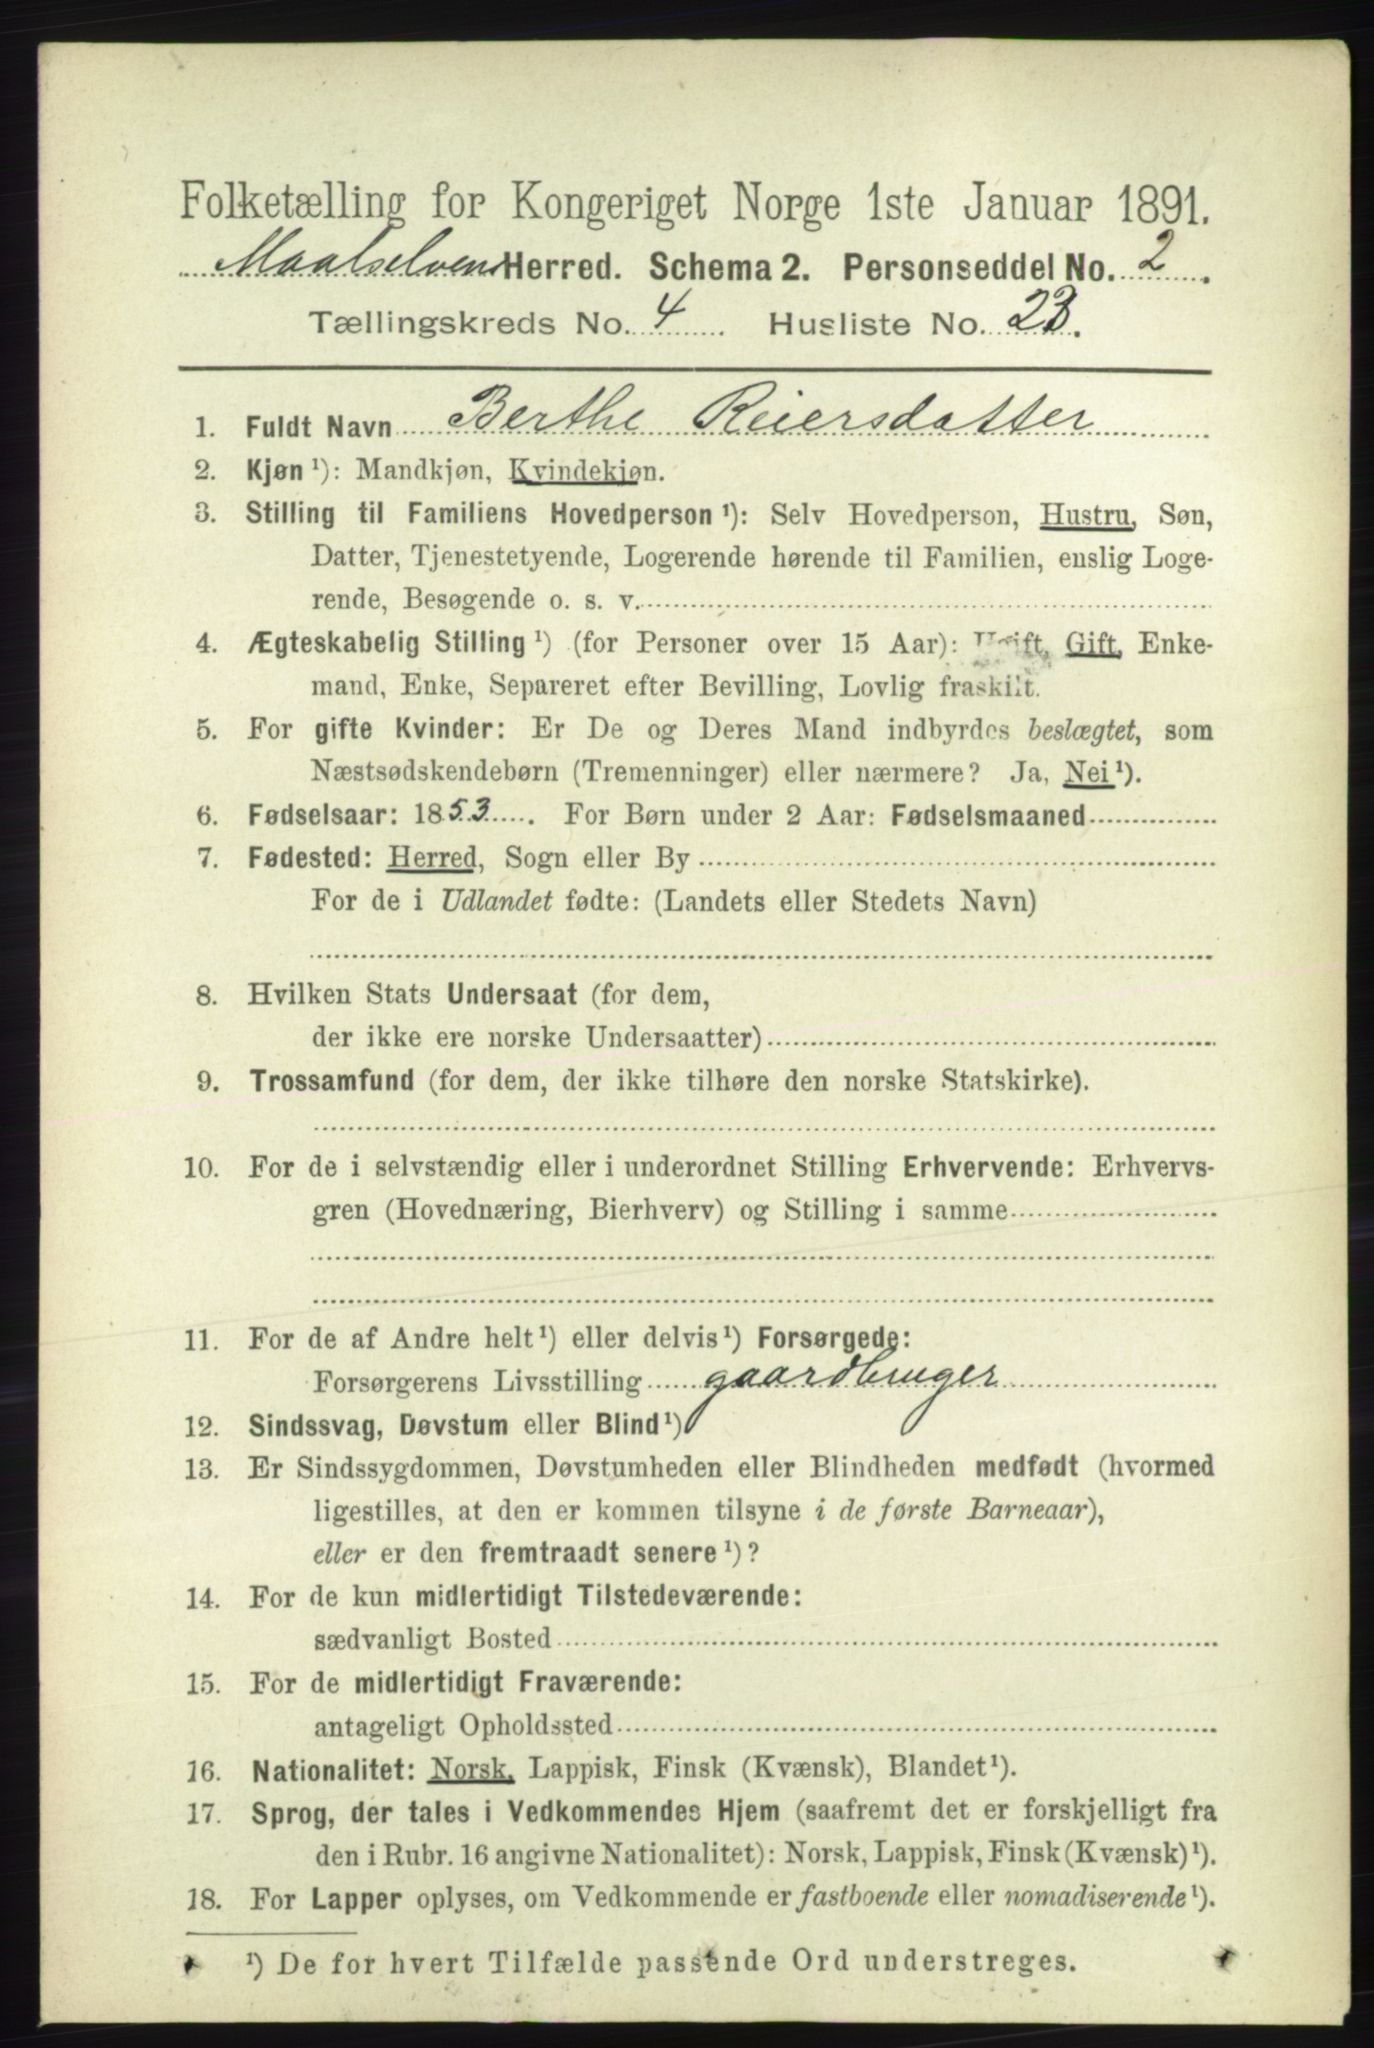 Folketælling for Kongeriget Norge 1ste Januar 1891.
Maalselvens Herred. Schema 2. Personseddel No. 2.
Tællingskreds No. 4 Husliste No. 23.
1. Fuldt Navn Berthe Reiersdatter
2. Kjøn ¹): Mandkjøn, Kvindekjøn.
3. Stilling til Familiens Hovedperson ¹): Selv Hovedperson, Hustru, Søn,
Datter, Tjenestetyende, Logerende hørende til Familien, enslig Loge-
rende, Besøgende o. s. v.
4. Ægteskabelig Stilling ¹) (for Personer over 15 Aar): Ugift, Gift, Enke-
mand, Enke, Separeret efter Bevilling, Lovlig fraskilt.
5. For gifte Kvinder: Er De og Deres Mand indbyrdes beslægtet, som
Næstsødskendebørn (Tremenninger) eller nærmere? Ja, Nei ¹).
6. Fødselsaar: 1853. For Børn under 2 Aar: Fødselsmaaned
7. Fødested: Herred, Sogn eller By
For de i Udlandet fødte: (Landets eller Stedets Navn)
8. Hvilken Stats Undersaat (for dem,
der ikke ere norske Undersaatter)
9. Trossamfund (for dem, der ikke tilhøre den norske Statskirke).
10. For de i selvstændig eller i underordnet Stilling Erhvervende: Erhvervs-
gren (Hovednæring, Bierhverv) og Stilling i samme
11. For de af Andre helt ¹) eller delvis ¹) Forsørgede:
Forsørgerens Livsstilling gaardbruger
12. Sindssvag, Døvstum eller Blind ¹)
13. Er Sindssygdommen, Døvstumheden eller Blindheden medfødt (hvormed
ligestilles, at den er kommen tilsyne i de første Barneaar),
eller er den fremtraadt senere ¹)?
14. For de kun midlertidigt Tilstedeværende:
sædvanligt Bosted
15. For de midlertidigt Fraværende:
antageligt Opholdssted
16. Nationalitet: Norsk, Lappisk, Finsk (Kvænsk), Blandet ¹).
17. Sprog, der tales i Vedkommendes Hjem (saafremt det er forskjelligt fra
den i Rubr. 16 angivne Nationalitet): Norsk, Lappisk, Finsk (Kvænsk) ¹).
18. For Lapper oplyses, om Vedkommende er fastboende eller nomadiserende ¹).
¹) De for hvert Tilfælde passende Ord understreges.